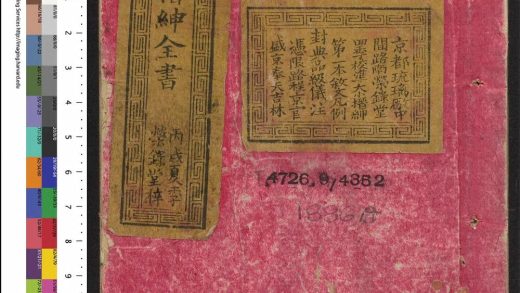 紳全書
丙戌夏季
榮錄堂梓
京都琉璃廠中
間路南榮錄堂
進大搢紳
第一本敘凡例
封典品級儀注
憑限路程京官
盛京奉天吉林
4726.8/4352
1886
ing Services http://imaging.harvard.edu
2
3
4
5
6
7
8
9